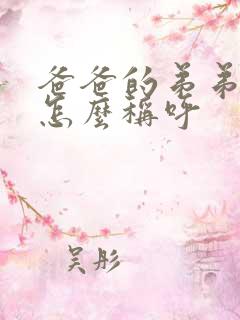 爸爸的弟弟
怎麼稱呼
吴彤